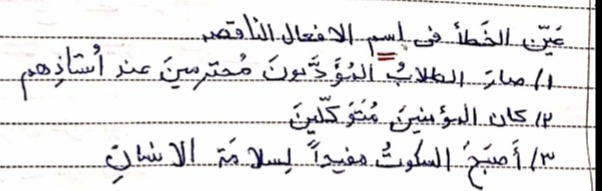 عَيِّن الخَطأ فى اِسم الافعال الناقصه
١/ صارَ الطلابُ المُؤَدَّبونَ مُحترمينَ عند اُستاذِهم
٢/ كان المؤمنينَ مُتَوَكّلينَ
٣/ أَصبَحَ السكوتُ مفيداً لِسلامَة الانسانِ